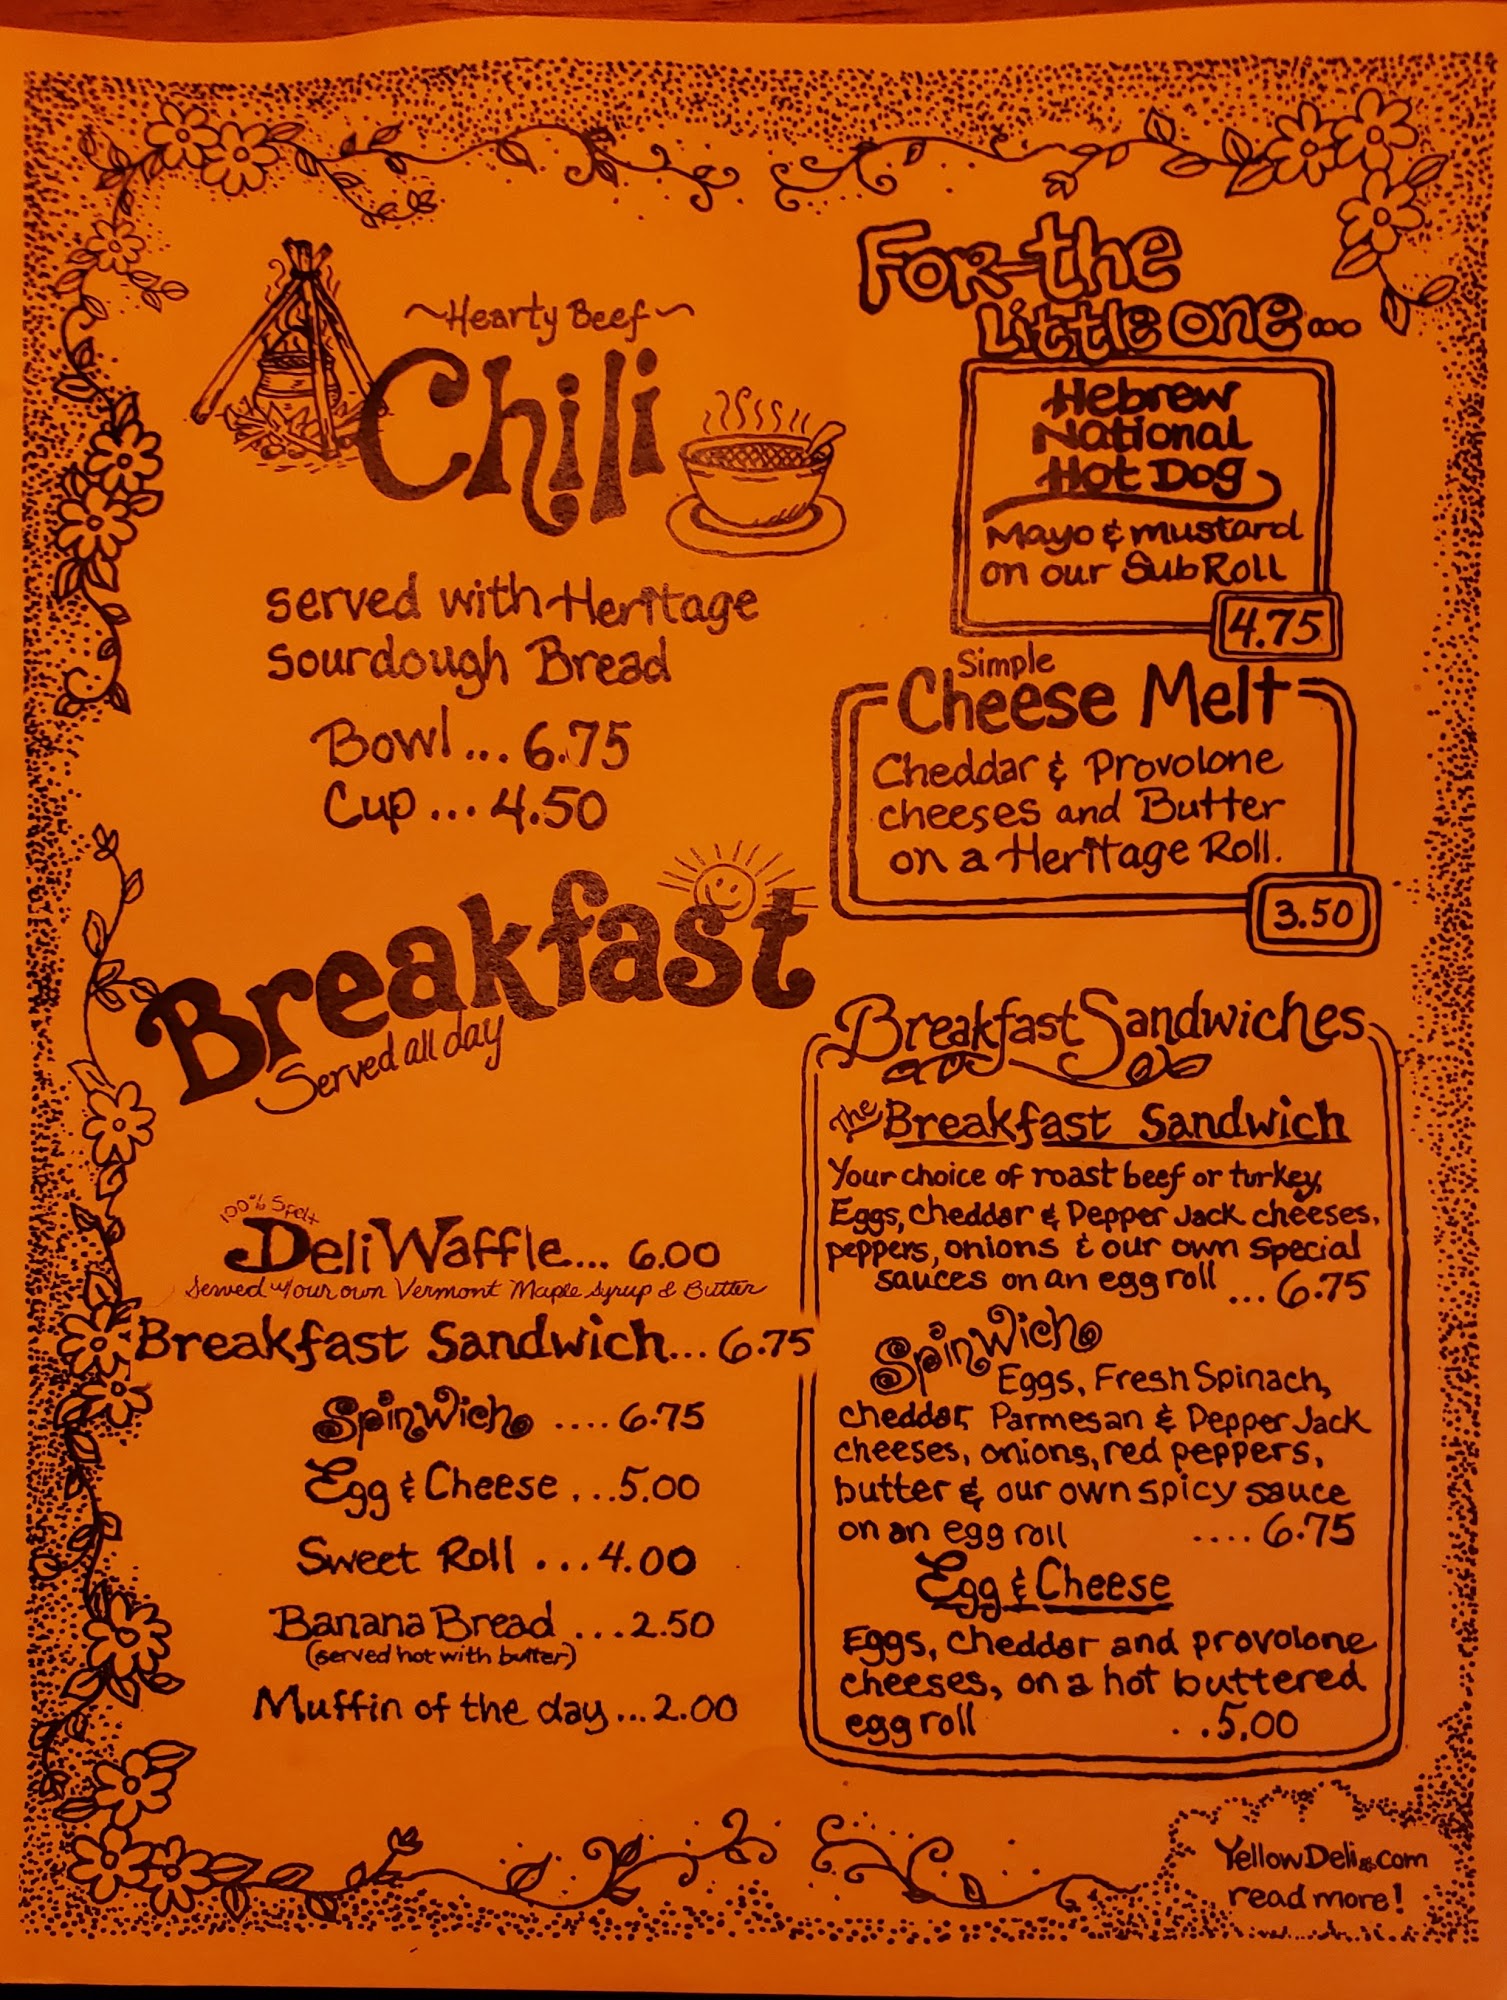 ~Hearty Beef~
Chili
served with Heritage
Sourdough Bread
Bowl... 6.75
Cup... 4.50
For the
Little one...
Hebrew
National
Hot Dog
Mayo & mustard
on our Sub Roll
4.75
Simple
Cheese Melt
Cheddar & Provolone
cheeses and Butter
on a Heritage Roll.
3.50
Breakfast
Served all day
100% Spelt
Deli Waffle... 6.00
Served w/our own Vermont Maple Syrup & Butter
Breakfast Sandwich... 6.75
Spinwich .... 6.75
Egg & Cheese ...5.00
Sweet Roll ...4.00
Banana Bread ...2.50
(served hot with butter)
Muffin of the day...2.00
Breakfast Sandwiches
The Breakfast Sandwich
Your choice of roast beef or turkey,
Eggs, cheddar & Pepper Jack cheeses,
peppers, onions & our own special
sauces on an egg roll ... 6.75
Spinwich
Eggs, Fresh Spinach,
cheddar, Parmesan & Pepper Jack
cheeses, onions, red peppers,
butter & our own spicy sauce
on an egg roll .... 6.75
Egg & Cheese
Eggs, cheddar and provolone
cheeses, on a hot buttered
egg roll ..5.00
YellowDeli.com
read more!